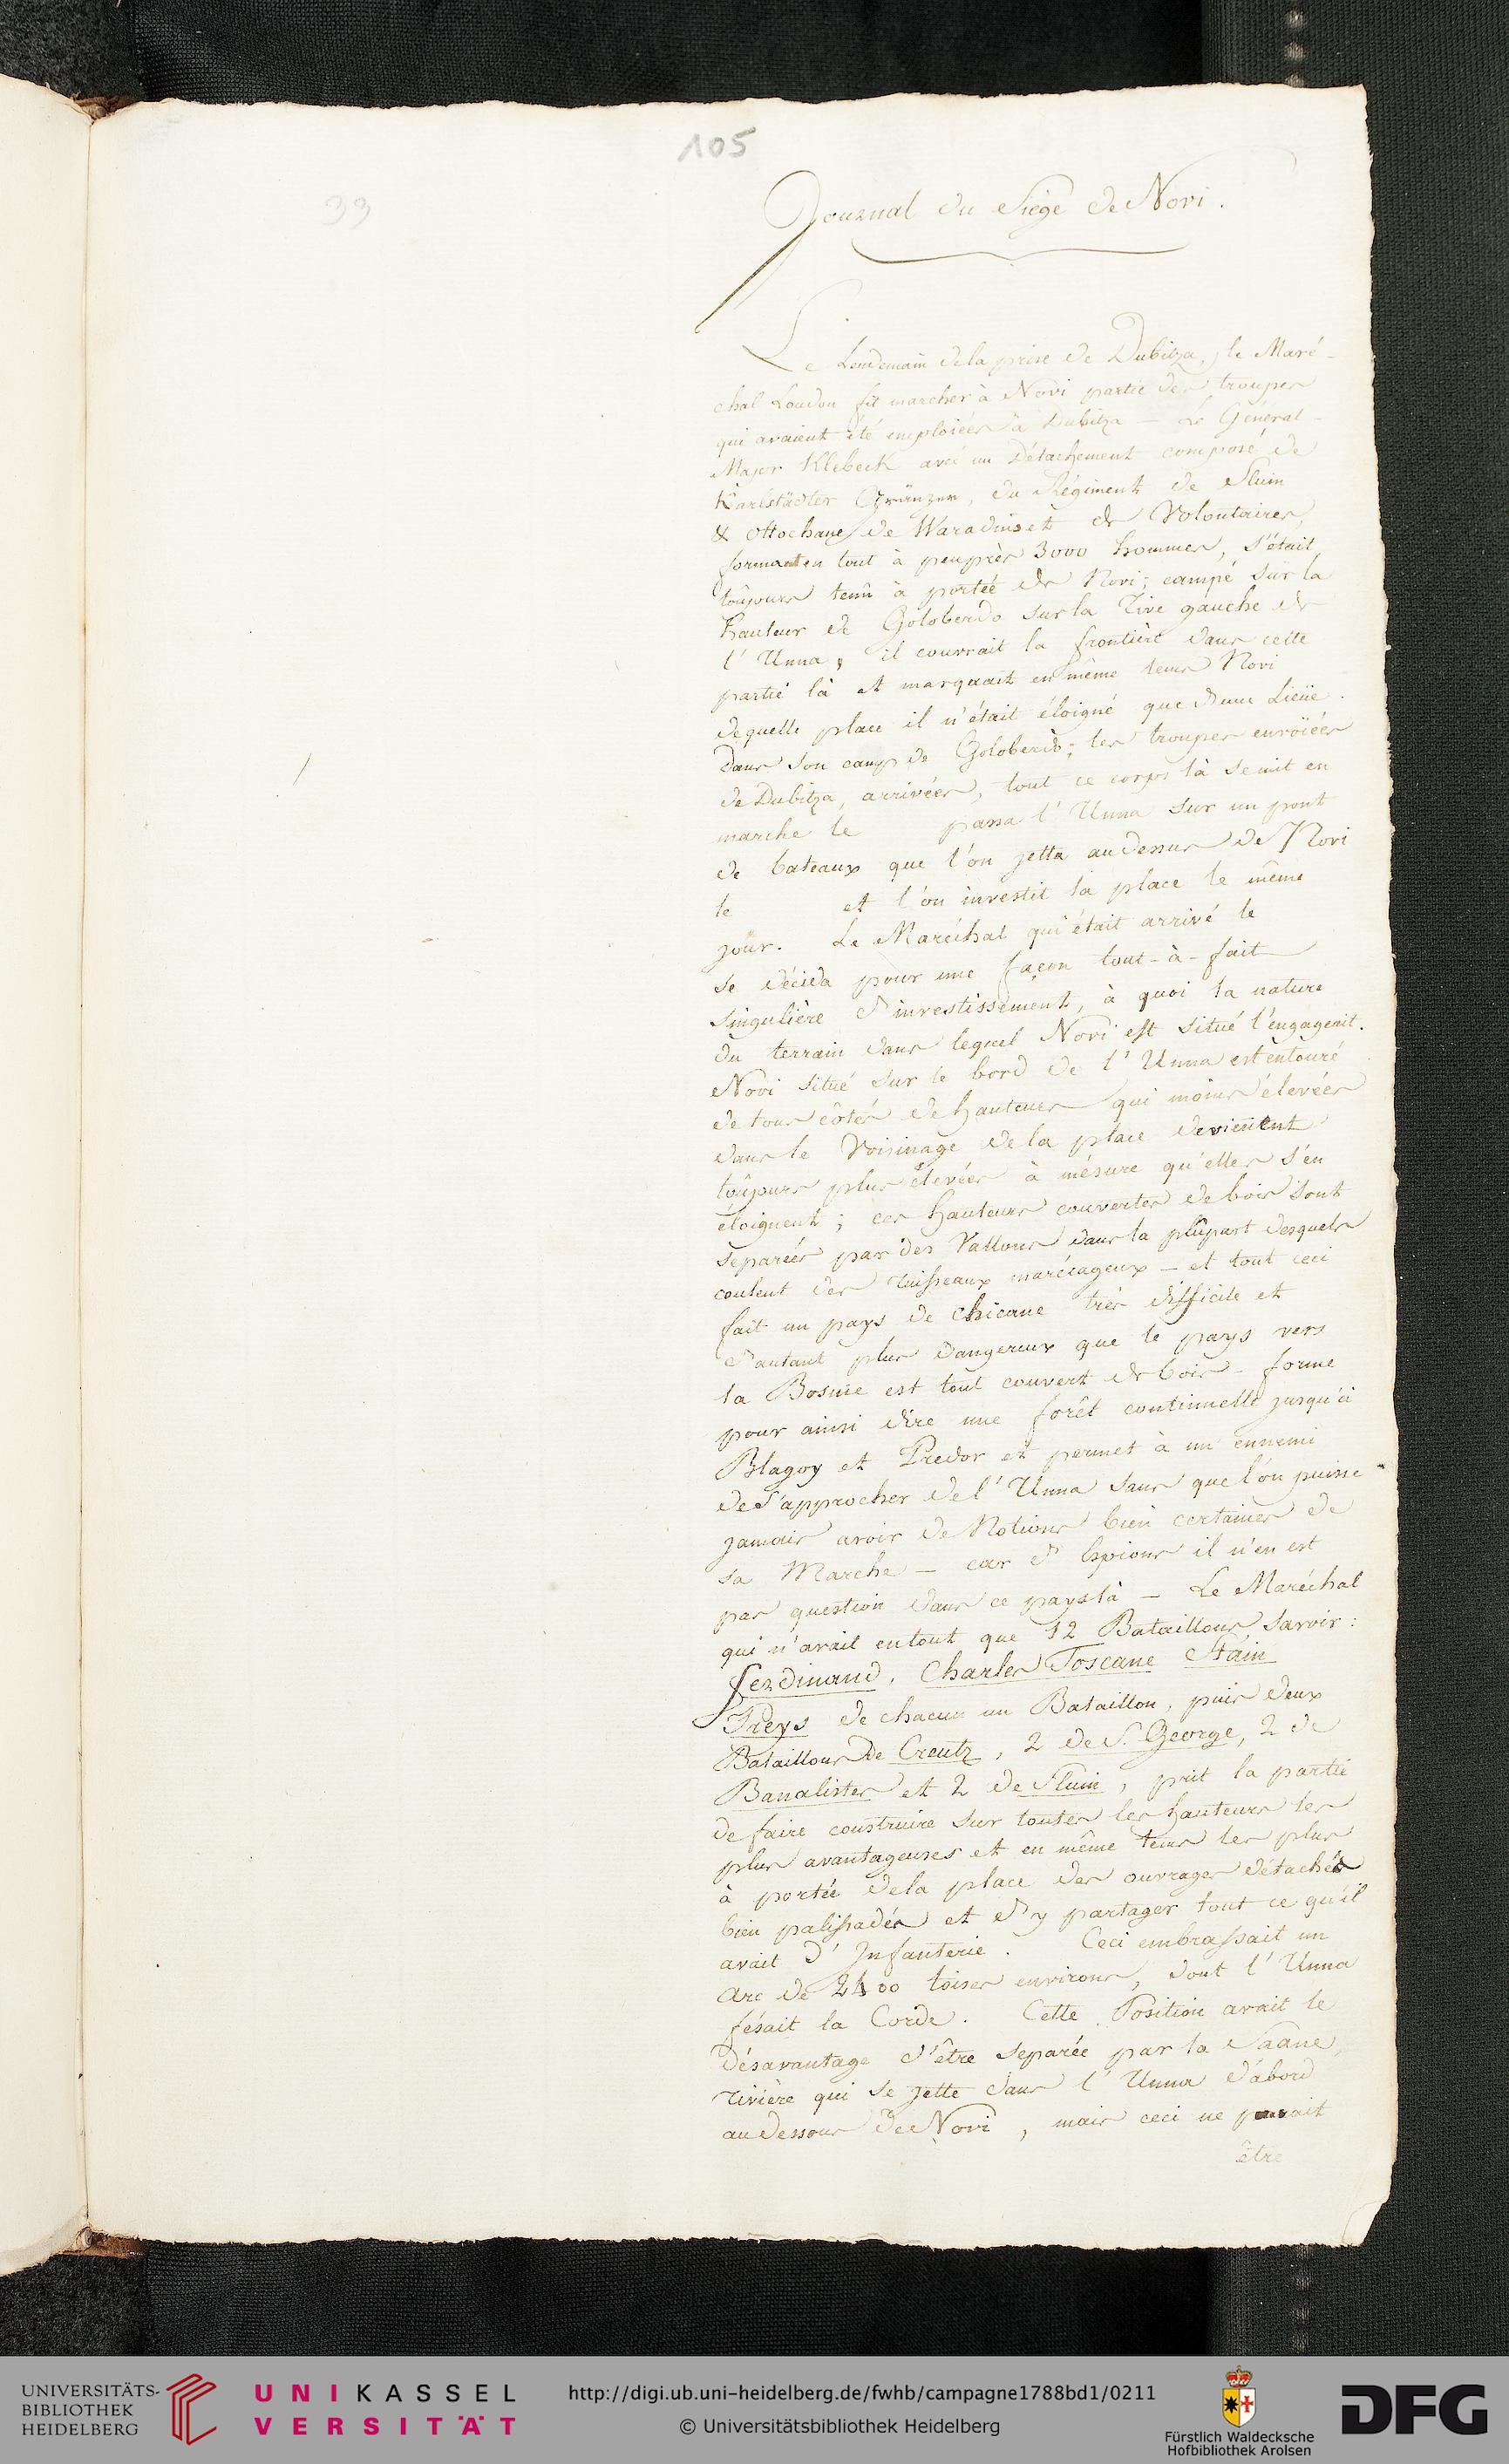 105
33
Journal du Siège de Novi.
Le Lendemain de la prise de Dubitza, le Maré-
chal Loudon fit marcher à Novi partie des troupes
qui avaient été emploiées à Dubitza — Le Général-
Major Klebeck avec un Détachement composé de
Karlstädter Gränzer, du Régiment de Sluin
& Ottochane de Waradins et de Volontaires,
formant en tout à peuprès 3000 hommes, s'était
toûjours tenû à portée de Novi; campé sur la
hauteur de Goloberdo sur la rive gauche de
l'Unna, il couvrait la frontière dans cette
partie là et marquait en même tems Novi
dequelle place il n'était éloigné que d'une Lieüe.
Dans son camp de Goloberdo; les troupes envoiées
de Dubitza, arrivées, tout ce corps là se mit en
marche le passa l'Unna sur un pont
de bateaux que l'on jetta audessus de Novi
le et l'on investit la place le même
jour. Le Maréchal qui était arrivé le
se décida pour une façon tout-à-fait
singulière d'investissement, à quoi la nature
du terrain dans lequel Novi est situé l'engageait.
Novi situé sur le bord de l'Unna est entouré
de tous côtés de hauteurs qui moins élevées
dans le Voisinage de la place deviennent
toûjours plus élevées à mésure qu'elles s'en
éloignent; ces hauteurs couvertes de bois sont
separées par des Vallons dans la plûpart desquels
coulent des ruisseaux marécageux — et tout ceci
fait un pays de chicane très difficile et
d'autant plus dangereux que le pays vers
la Bosnie est tout couvert de bois - forme
pour ainsi dire une forêt continuelle jusqu'à
Blagoy et Predor et permet à un ennemi
de s'approcher de l'Unna sans que l'on puisse
jamais avoir de Notions bien certaines de
sa Marche — car d'Espions il n'en est
pas question dans ce pays là — Le Maréchal
qui n'avait en tout que 12 Bataillons, savoir:
Ferdinand, Charles Toscane Stain
Preys de chacun un Bataillon, puis deux
Bataillons de Creutz, 2 de S. George, 2 de
Banalistes et 2 de Sluin, prit la partie
de faire construire sur toutes les hauteurs les
plus avantageuses et en même tems les plus
à portée de la place des ouvrages détachés
bien palissadés et d'y partager tout ce qu'il
avait d'Infanterie. Ceci embrassait un
Arc de 2400 toises environs, dont l'Unna
fésait la Corde. Cette Position avait le
désavantage d'être separée par la Saane,
rivière qui se jette dans l'Unna d'abord
audessous de Novi, mais ceci ne pouvait
être
UNIVERSITÄTS-
BIBLIOTHEK
HEIDELBERG
UNIKASSEL
VERSITÄT
http://digi.ub.uni-heidelberg.de/fwhb/campagne1788bd1/0211
© Universitätsbibliothek Heidelberg
Fürstlich Waldecksche
Hofbibliothek Arolsen
DFG